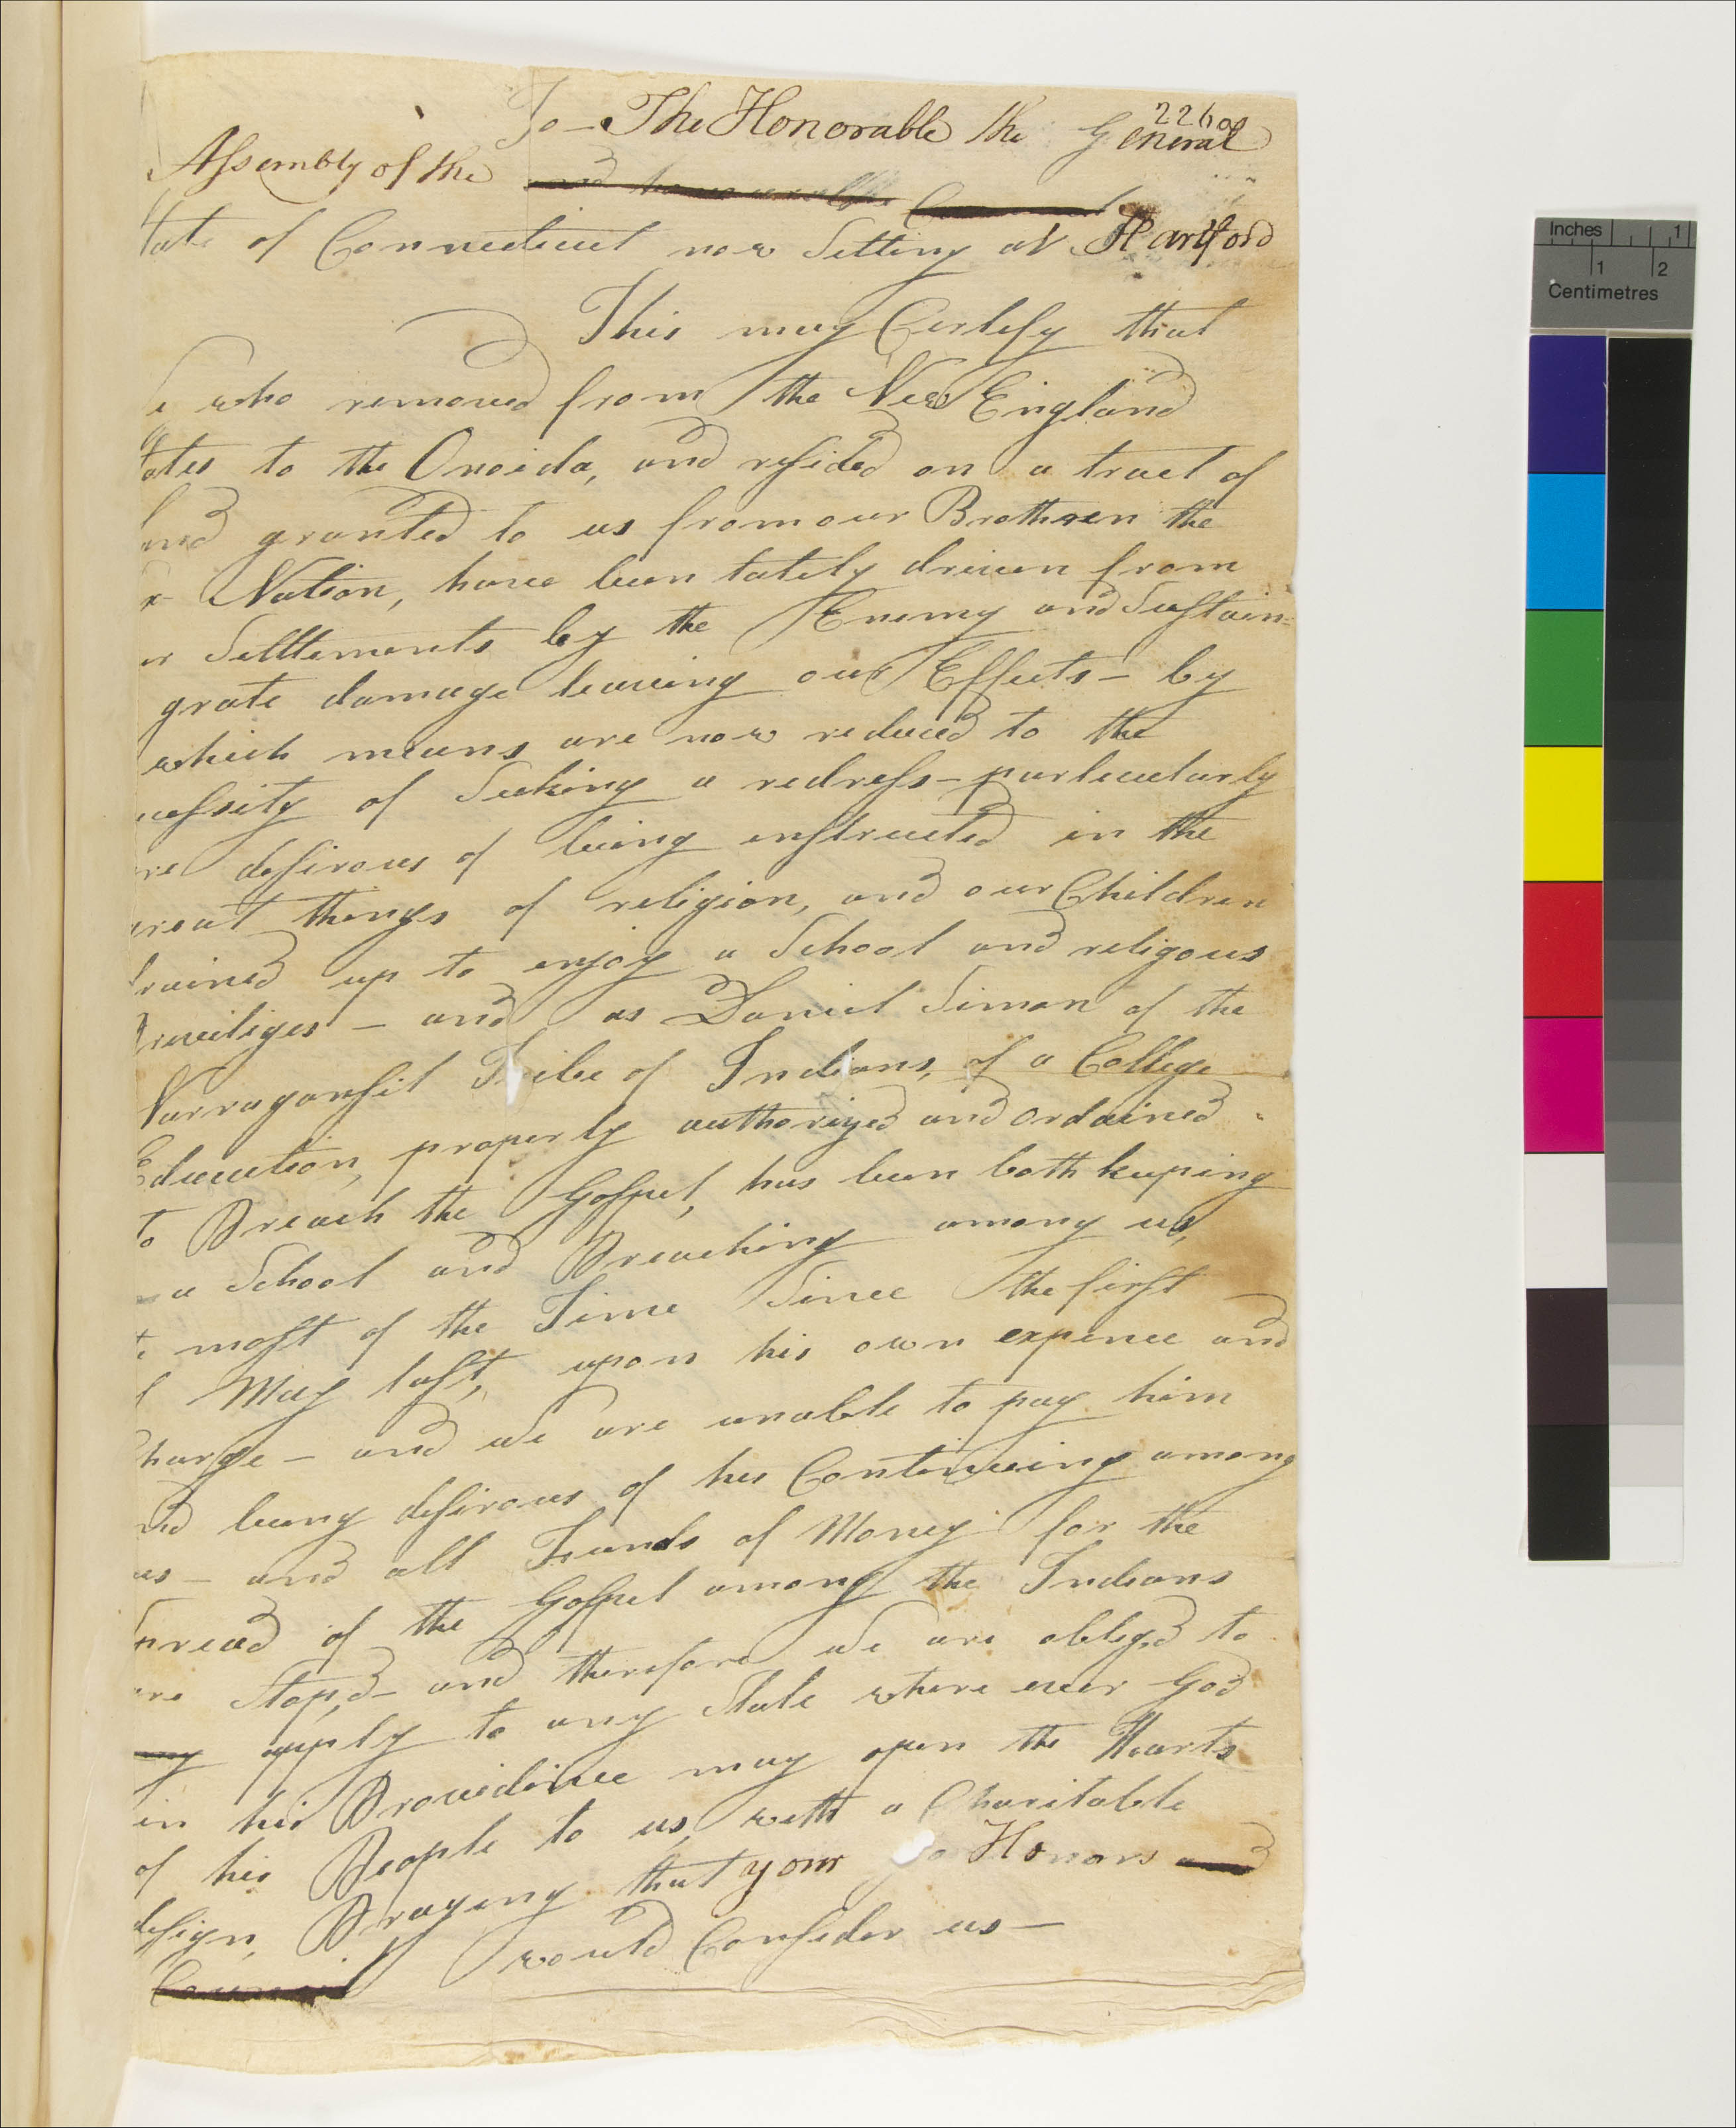 226
To The Honorable the General
Assembly of the and honourable Council
tate of Connecticut now Setting at Hartford
This may Certefy that
e who removed from the New England
tates to the Oneida, and resided on a tract of
and granted to us from our Brothren the
x Nation, have been tately driven from
ur Setttements by the Enemy and Sustain=
grate damage leaving our Effects – by
which means are now reduced to the
cessity of Seeking a redress – particularly
re desirous of being enstructed in the
great things of religion, and our Children
trained up to enjoy a School and religous
Priviliges – and as Daniel Simon of the
Narragansit Tribe of Indians, of a College
Education, properly authorized and ordained
to Preach the Gospel, has been both keeping
a School and Preaching among us,
most of the Time Since the first
May last, upon his own expence and
harge – and we are unable to pay him
nd being desirous of his Continuing among
us – and all Funds of Money for the
Spread of the Gospel among the Indians
are Stop,d – and therefore we are obleg,d to
apply to any State where ever God
in his Providence may open the Hearts
of his People to us, with a Charitable
design, Praying that your Honors and
Council would Consider us –
Inches 1
1 2
Centimetres